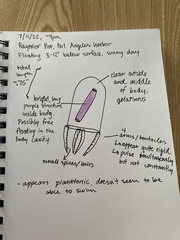 7/11/22, ~8pm
Raynier Pier, Port Angeles Harbor
Floating 8-12" below surface, sunny day
total length ~.75"
clear outside and middle of body, gelatinous
bright, long purple structure inside body. Possibly free floating in the body cavity.
4 arms/tentacles
↳ appear quite rigid
↳ pulse simultaneously but not constantly
small spines/hairs
- appears planktonic, doesn't seem to be able to swim